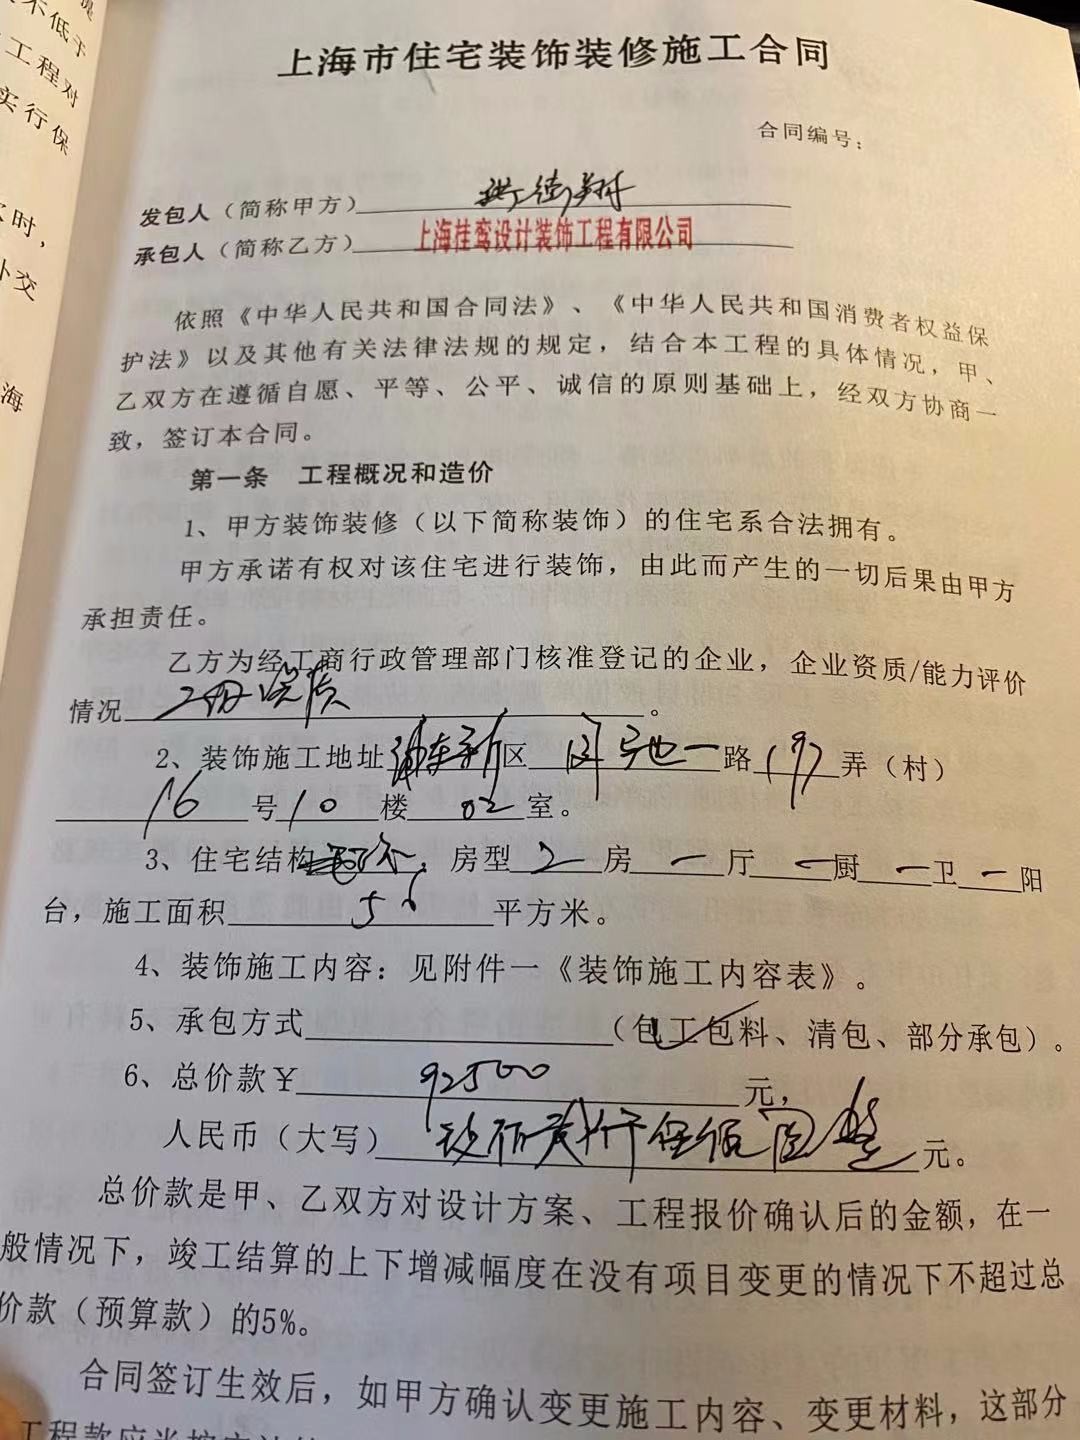 不低于
工程对
实行保
时，
卜交
海
上海市住宅装饰装修施工合同
合同编号：
发包人（简称甲方）
承包人（简称乙方）上海桂鸾设计装饰工程有限公司
依照《中华人民共和国合同法》、《中华人民共和国消费者权益保
护法》以及其他有关法律法规的规定，结合本工程的具体情况，甲、
乙双方在遵循自愿、平等、公平、诚信的原则基础上，经双方协商一
致，签订本合同。
第一条 工程概况和造价
1、甲方装饰装修（以下简称装饰）的住宅系合法拥有。
甲方承诺有权对该住宅进行装饰，由此而产生的一切后果由甲方
承担责任。
乙方为经工商行政管理部门核准登记的企业，企业资质/能力评价
情况。
2、装饰施工地址浦东新区路197弄（村）
16号10楼02室。
3、住宅结构，房型2房一厅一厨一卫一阳
台，施工面积56平方米。
4、装饰施工内容：见附件一《装饰施工内容表》。
5、承包方式（包工包料、清包、部分承包）。
6、总价款￥92500元，
人民币（大写）元。
总价款是甲、乙双方对设计方案、工程报价确认后的金额，在一
般情况下，竣工结算的上下增减幅度在没有项目变更的情况下不超过总
价款（预算款）的5%。
合同签订生效后，如甲方确认变更施工内容、变更材料，这部分